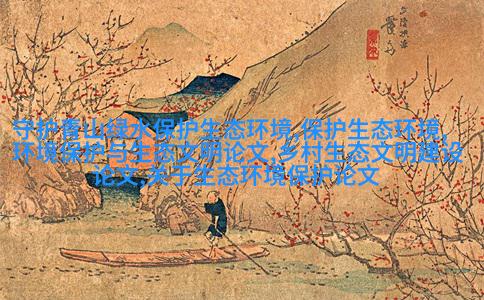 守护青山绿水保护生态环境,保护生态环境
环境保护与生态文明论文,乡村生态文明建设
论文,关于生态环境保护论文